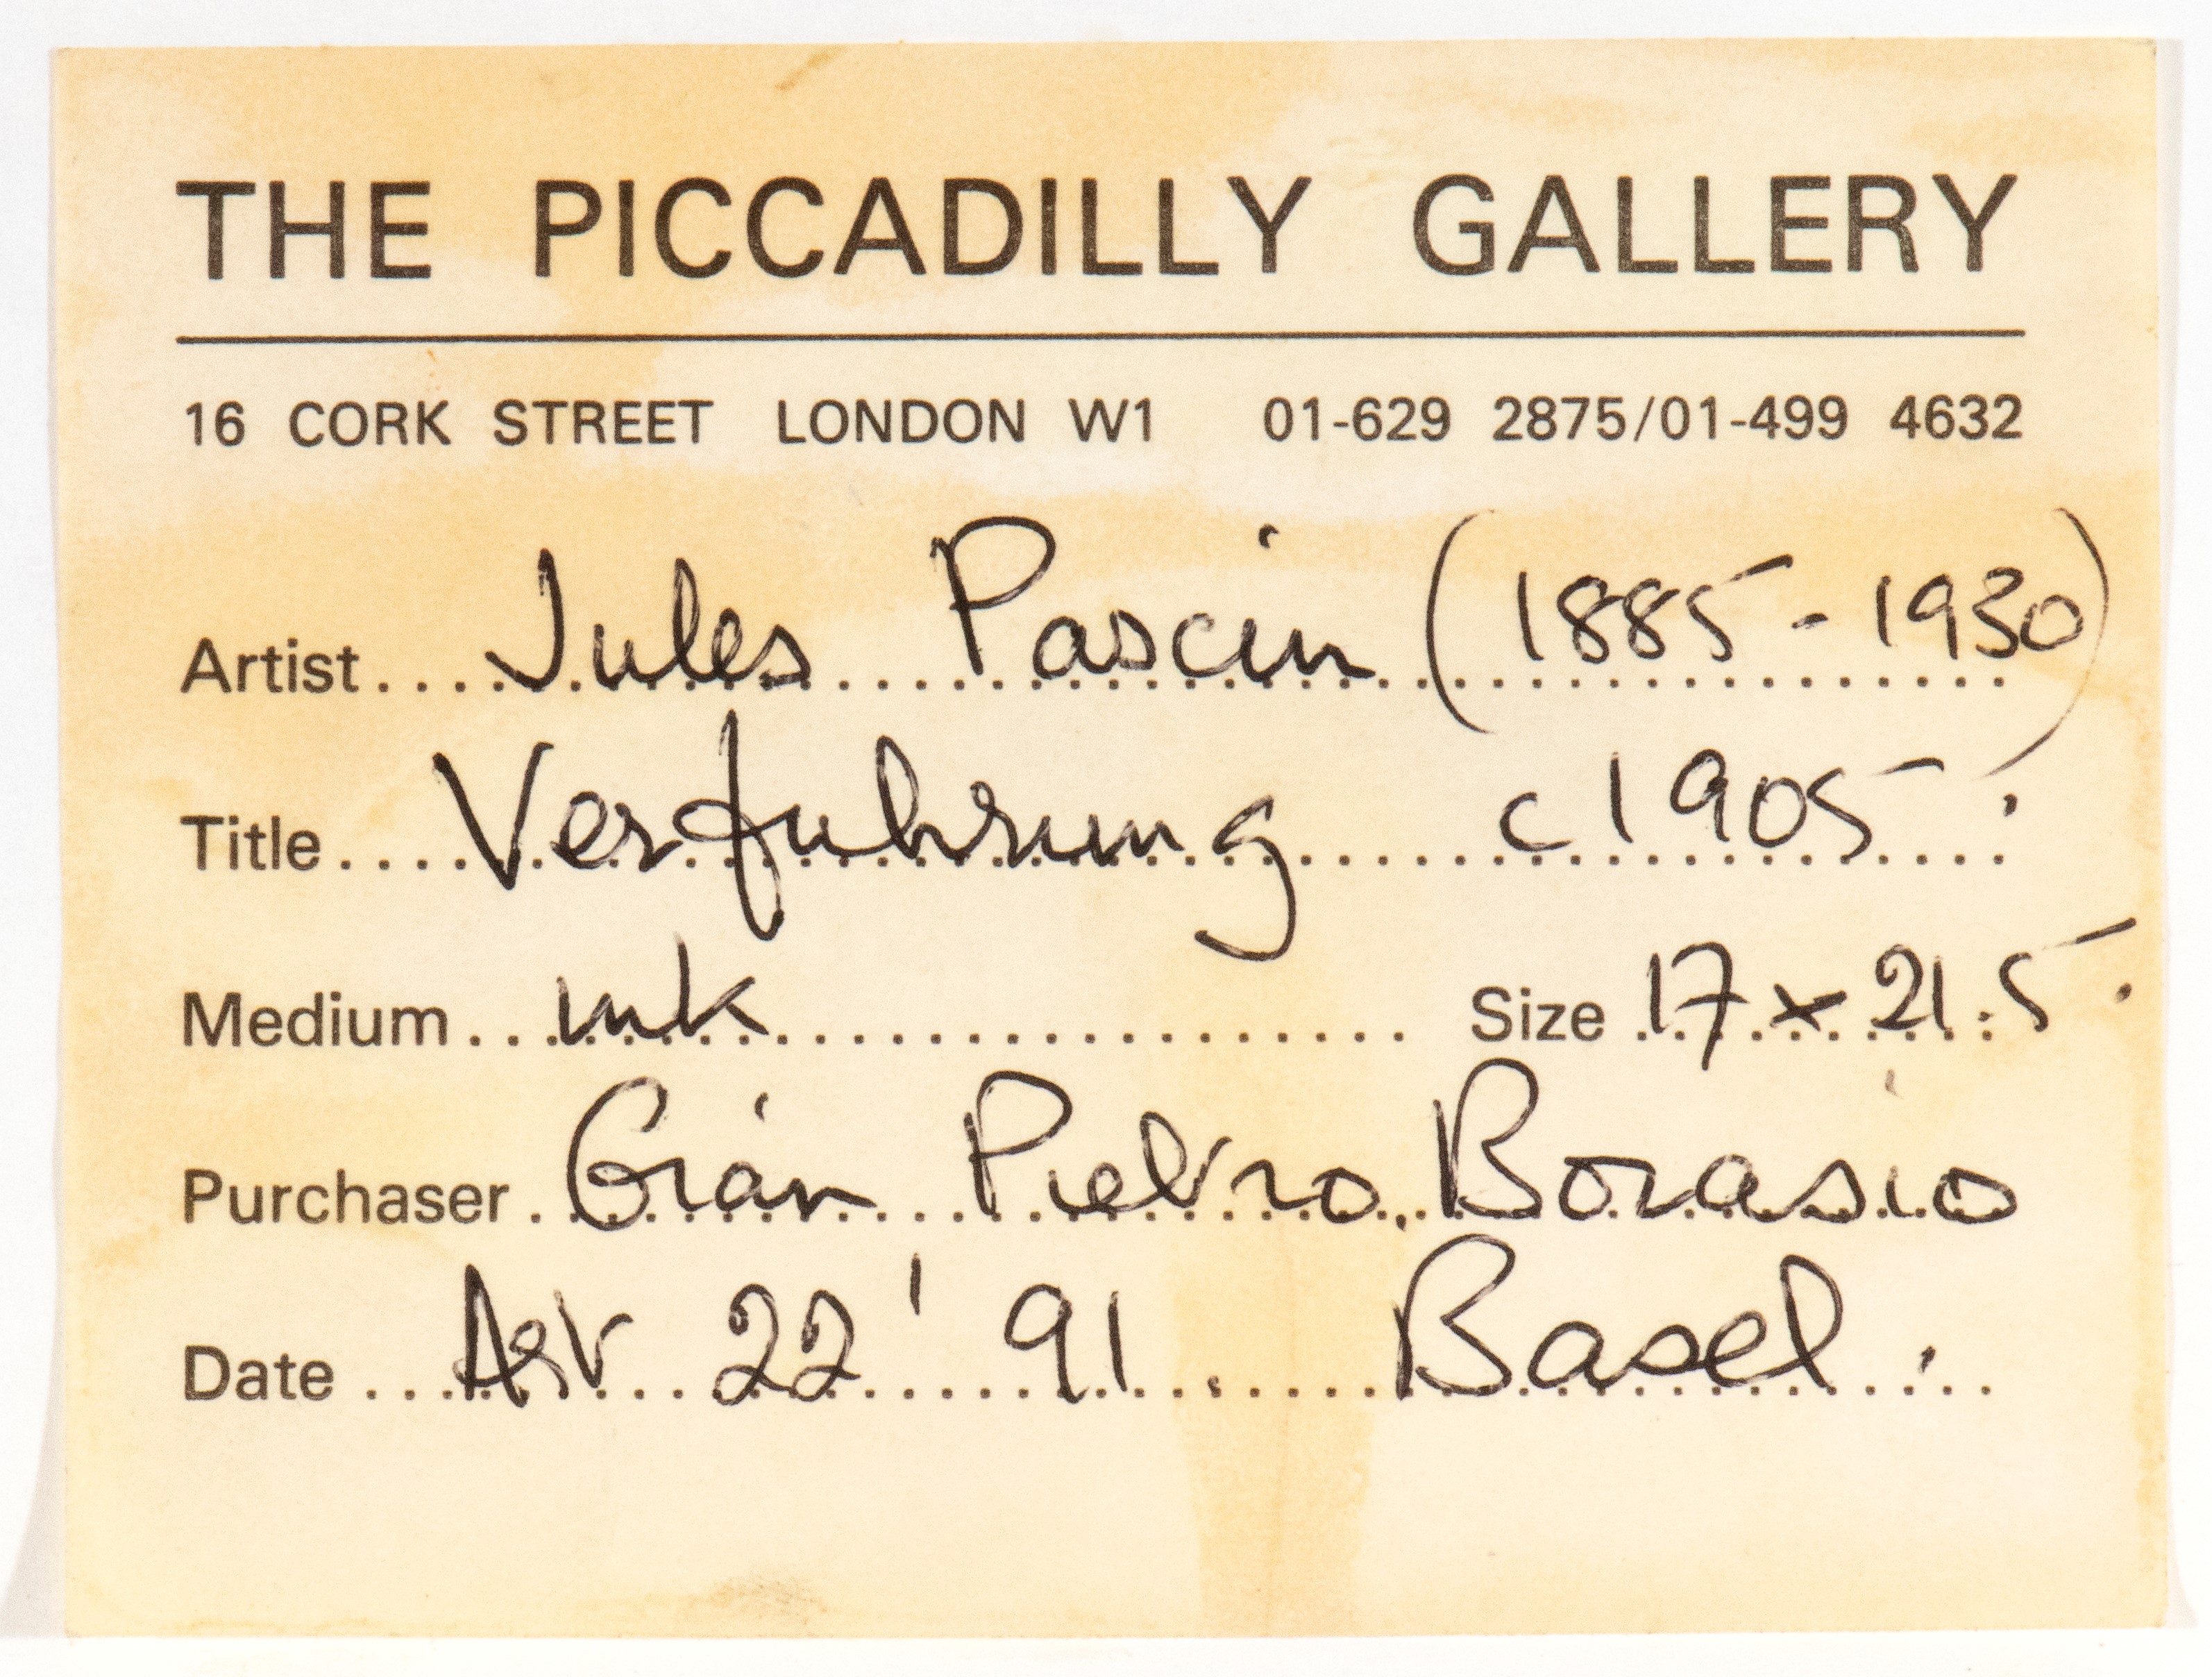 THE PICCADILLY GALLERY
16 CORK STREET LONDON W1 01-629 2875/01-499 4632
Artist Jules Pascin (1885 - 1930)
Title Verfuhrung c 1905.
Medium ink Size 17 x 21.5.
Purchaser Gian Pietro Borasio
Date 22 '91. Basel.